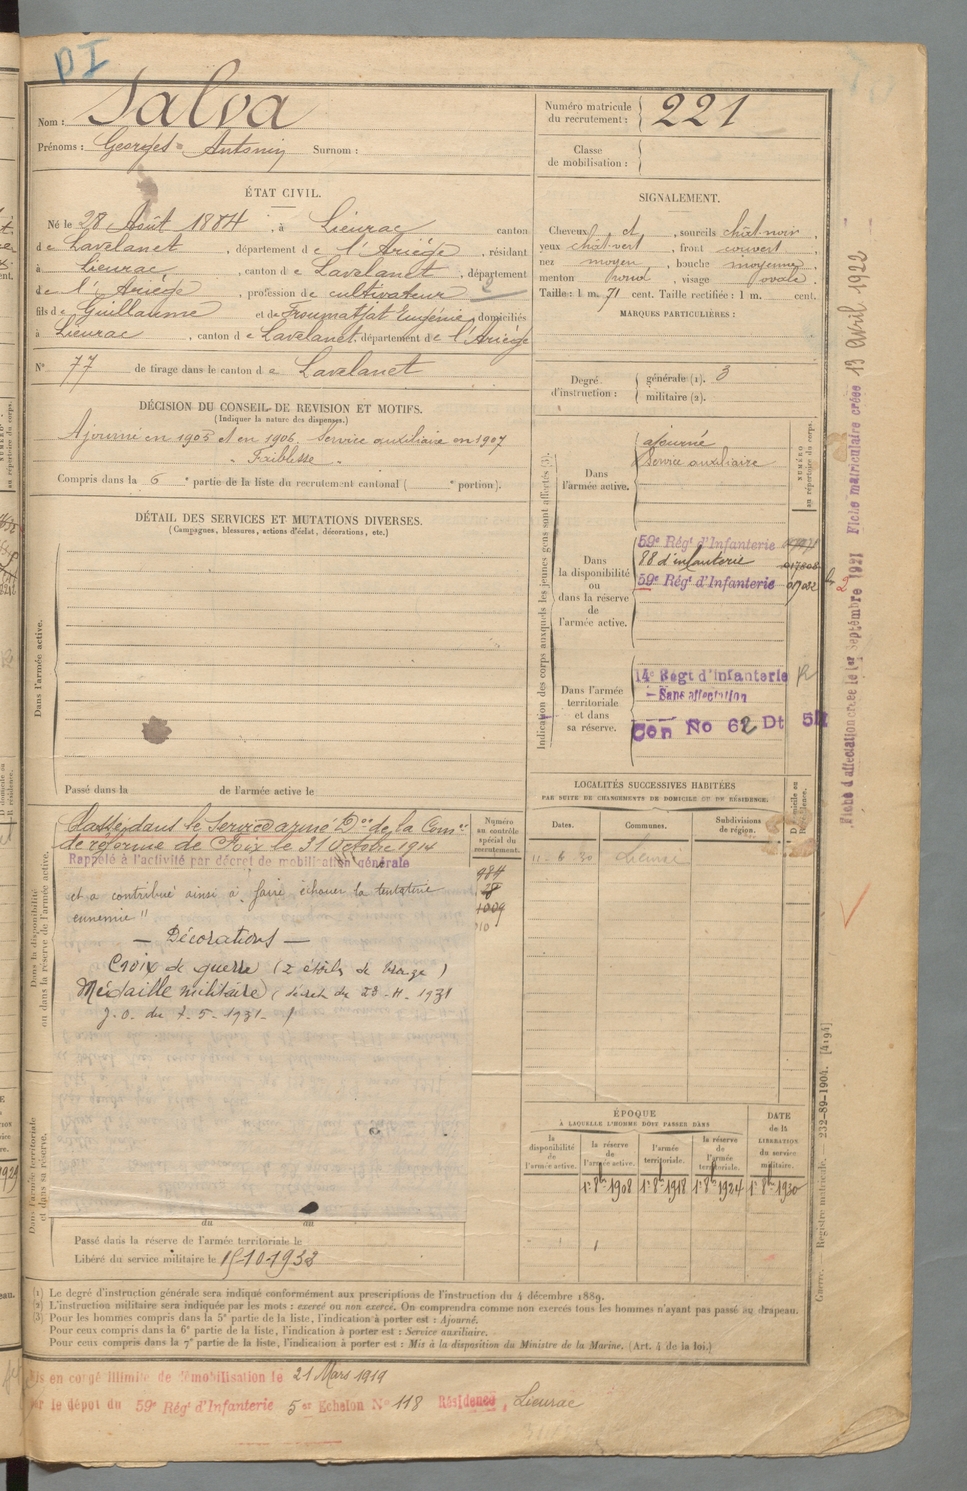 DI
Nom : Salva
Prénoms : Georges Antonin Surnom :
Numéro matricule du recrutement : 221
Classe de mobilisation :
ÉTAT CIVIL.
Né le 28 Août 1884, à Lieurac canton
de Lavelanet, département de l'Ariège, résidant
à Lieurac, canton de Lavelanet, département
de l'Ariège, profession de cultivateur
fils de Guillaume et de Eugénie, domiciliés
à Lieurac, canton de Lavelanet, département de l'Ariège
N° 77 de tirage dans le canton de Lavelanet
SIGNALEMENT.
Cheveux et, sourcils chât-noir,
yeux chât-vert, front couvert,
nez moyen, bouche moyenne,
menton rond, visage ovale.
Taille : 1 m. 71 cent. Taille rectifiée : 1 m. cent.
MARQUES PARTICULIÈRES :
Degré d'instruction : générale (1). 3
militaire (2).
DÉCISION DU CONSEIL DE REVISION ET MOTIFS.
(Indiquer la nature des dispenses.)
Ajourné en 1905 et en 1906. Service auxiliaire en 1907
" Faiblesse "
Compris dans la 6e partie de la liste du recrutement cantonal ( e portion).
DÉTAIL DES SERVICES ET MUTATIONS DIVERSES.
(Campagnes, blessures, actions d'éclat, décorations, etc.)
Dans l'armée active.
Passé dans la de l'armée active le
Indication des corps auxquels les jeunes gens sont affectés (3).
NUMÉRO au répertoire du corps.
Dans l'armée active.
ajourné
Service auxiliaire
Dans la disponibilité ou dans la réserve de l'armée active.
59e Régt d'Infanterie
88 d'infanterie
59e Régt d'Infanterie
Dans l'armée territoriale et dans sa réserve.
14e Régt d'Infanterie
– Sans affectation
Con No 62 Dt
Fiche d'affectation créée le 1er Septembre 1921 Fiche matriculaire créée 13 Avril 1922
Dans la disponibilité ou dans la réserve de l'armée active.
Classé dans le Service armé Don de la Comon
de réforme de Foix le 31 Octobre 1914
Rappelé à l'activité par décret de mobilisation générale
et a contribué ainsi à faire échouer la tentative
ennemie "
— Décorations —
Croix de guerre (2 étoiles de bronze)
Médaille militaire (décret du 23-4-1931
J.O. du 7-5-1931-)
Numéro au contrôle spécial du recrutement.
984
1009
LOCALITÉS SUCCESSIVES HABITÉES
PAR SUITE DE CHANGEMENTS DE DOMICILE OU DE RÉSIDENCE.
Dates. Communes. Subdivisions de région. D domicile ou R résidence.
Dans l'armée territoriale et dans sa réserve.
ÉPOQUE
À LAQUELLE L'HOMME DOIT PASSER DANS
la disponibilité de l'armée active. la réserve de l'armée active. l'armée territoriale. la réserve de l'armée territoriale.
DATE de la LIBÉRATION du service militaire.
1er 8bre 1908 1er 8bre 1918 1er 8bre 1924 1er 8bre 1930
du au
Passé dans la réserve de l'armée territoriale le
Libéré du service militaire le 15-10-1933
Guerre. — Registre matricule. 232-89-1904. [4194]
(1) Le degré d'instruction générale sera indiqué conformément aux prescriptions de l'instruction du 4 décembre 1889.
(2) L'instruction militaire sera indiquée par les mots : exercé ou non exercé. On comprendra comme non exercés tous les hommes n'ayant pas passé au drapeau.
(3) Pour les hommes compris dans la 5e partie de la liste, l'indication à porter est : Ajourné.
Pour ceux compris dans la 6e partie de la liste, l'indication à porter est : Service auxiliaire.
Pour ceux compris dans la 7e partie de la liste, l'indication à porter est : Mis à la disposition du Ministre de la Marine. (Art. 4 de la loi.)
Mis en congé illimité de démobilisation le 21 Mars 1919
par le dépôt du 59e Régt d'Infanterie 5er Echelon N° 118 Résidence, Lieurac